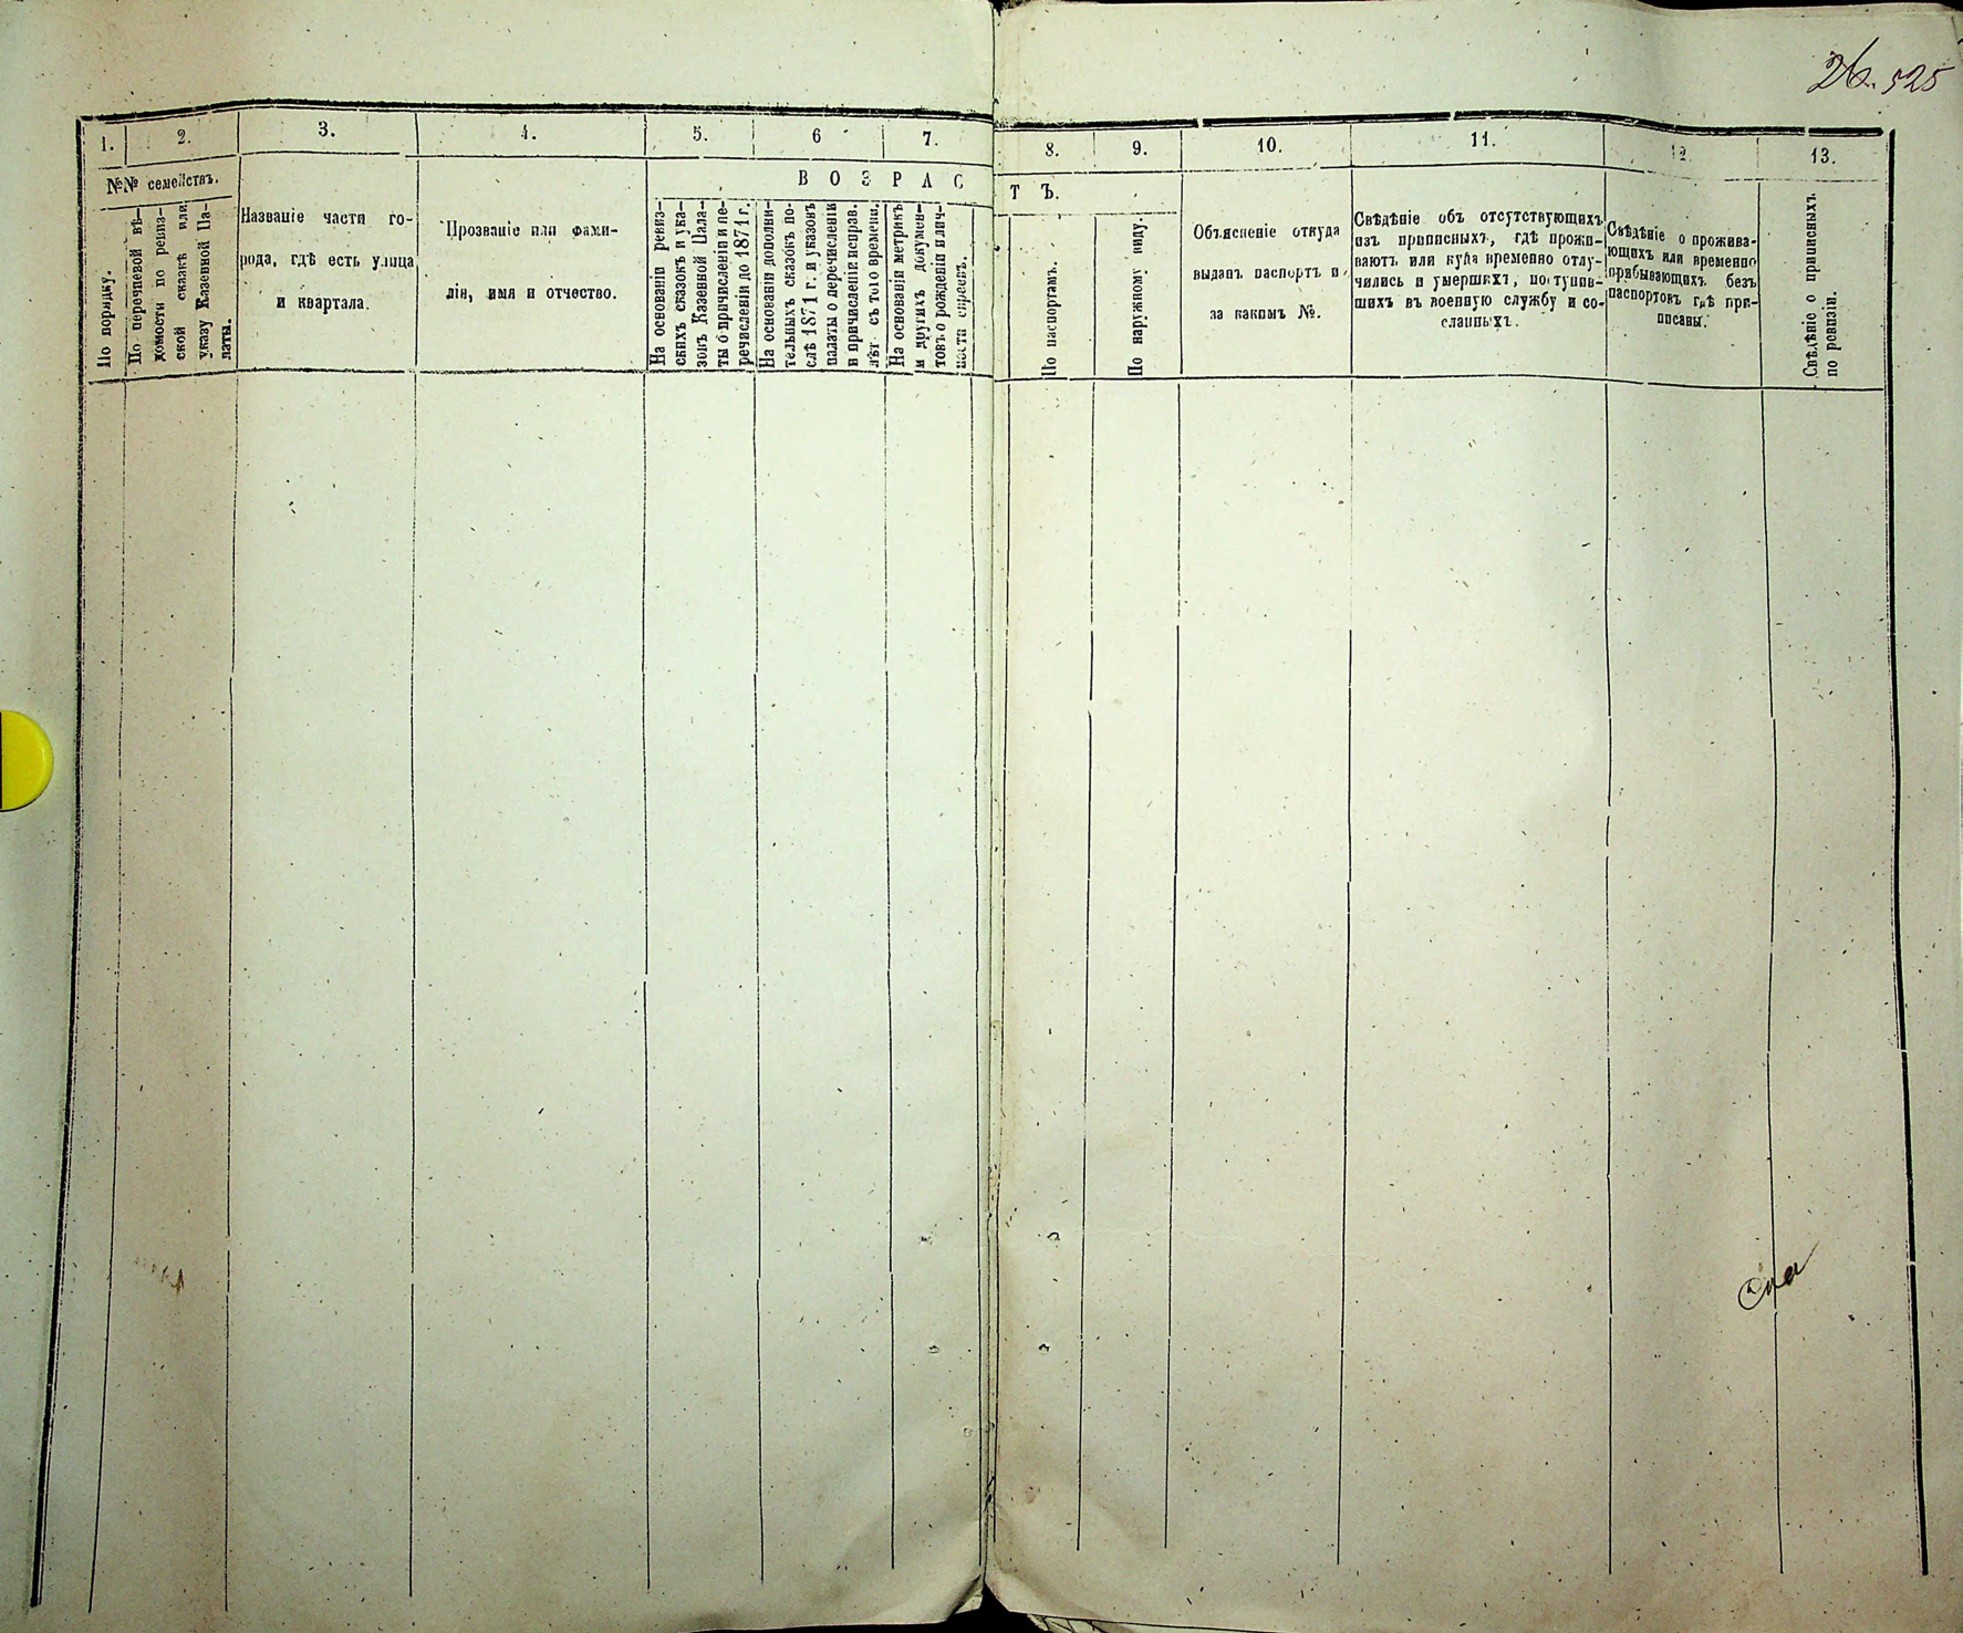 26. 525
1. 2. 3. 4. 5. 6 7. 8. 9. 10. 11. 12. 13.
№№ семействъ.
По порядку.
По перечневой вѣ-
домости по ревиз-
ской сказкѣ или
указу Казенной Па-
латы.
Названіе части го-
рода, гдѣ есть улица
и квартала.
Прозваніе или фами-
лія, имя и отчество.
ВОЗРАСТЪ.
На основаніи ревиз-
скихъ сказокъ и ука-
зовъ Казенной Пала-
ты о причисленіи и пе-
речисленіи до 1871 г.
На основаніи дополни-
тельныхъ сказокъ по-
слѣ 1871 г. и указовъ
палаты о перечисленіи
и причисленіи исправ.
лѣт. съ того времени.
На основаніи метрикъ
и другихъ докумен-
товъ о рожденіи и лич-
ности евреевъ.
По паспортамъ.
По наружному виду.
Объясненіе откуда
выданъ паспортъ и
за какимъ №.
Свѣдѣніе объ отсутствующихъ
изъ приписныхъ, гдѣ прожи-
ваютъ или куда временно отлу-
чились и умершихъ, поступив-
шихъ въ военную службу и со-
сланныхъ.
Свѣдѣніе о прожива-
ющихъ или временно
прибывающихъ безъ
паспортовъ гдѣ при-
писаны.
Свѣдѣніе о приписныхъ
по ревизіи.